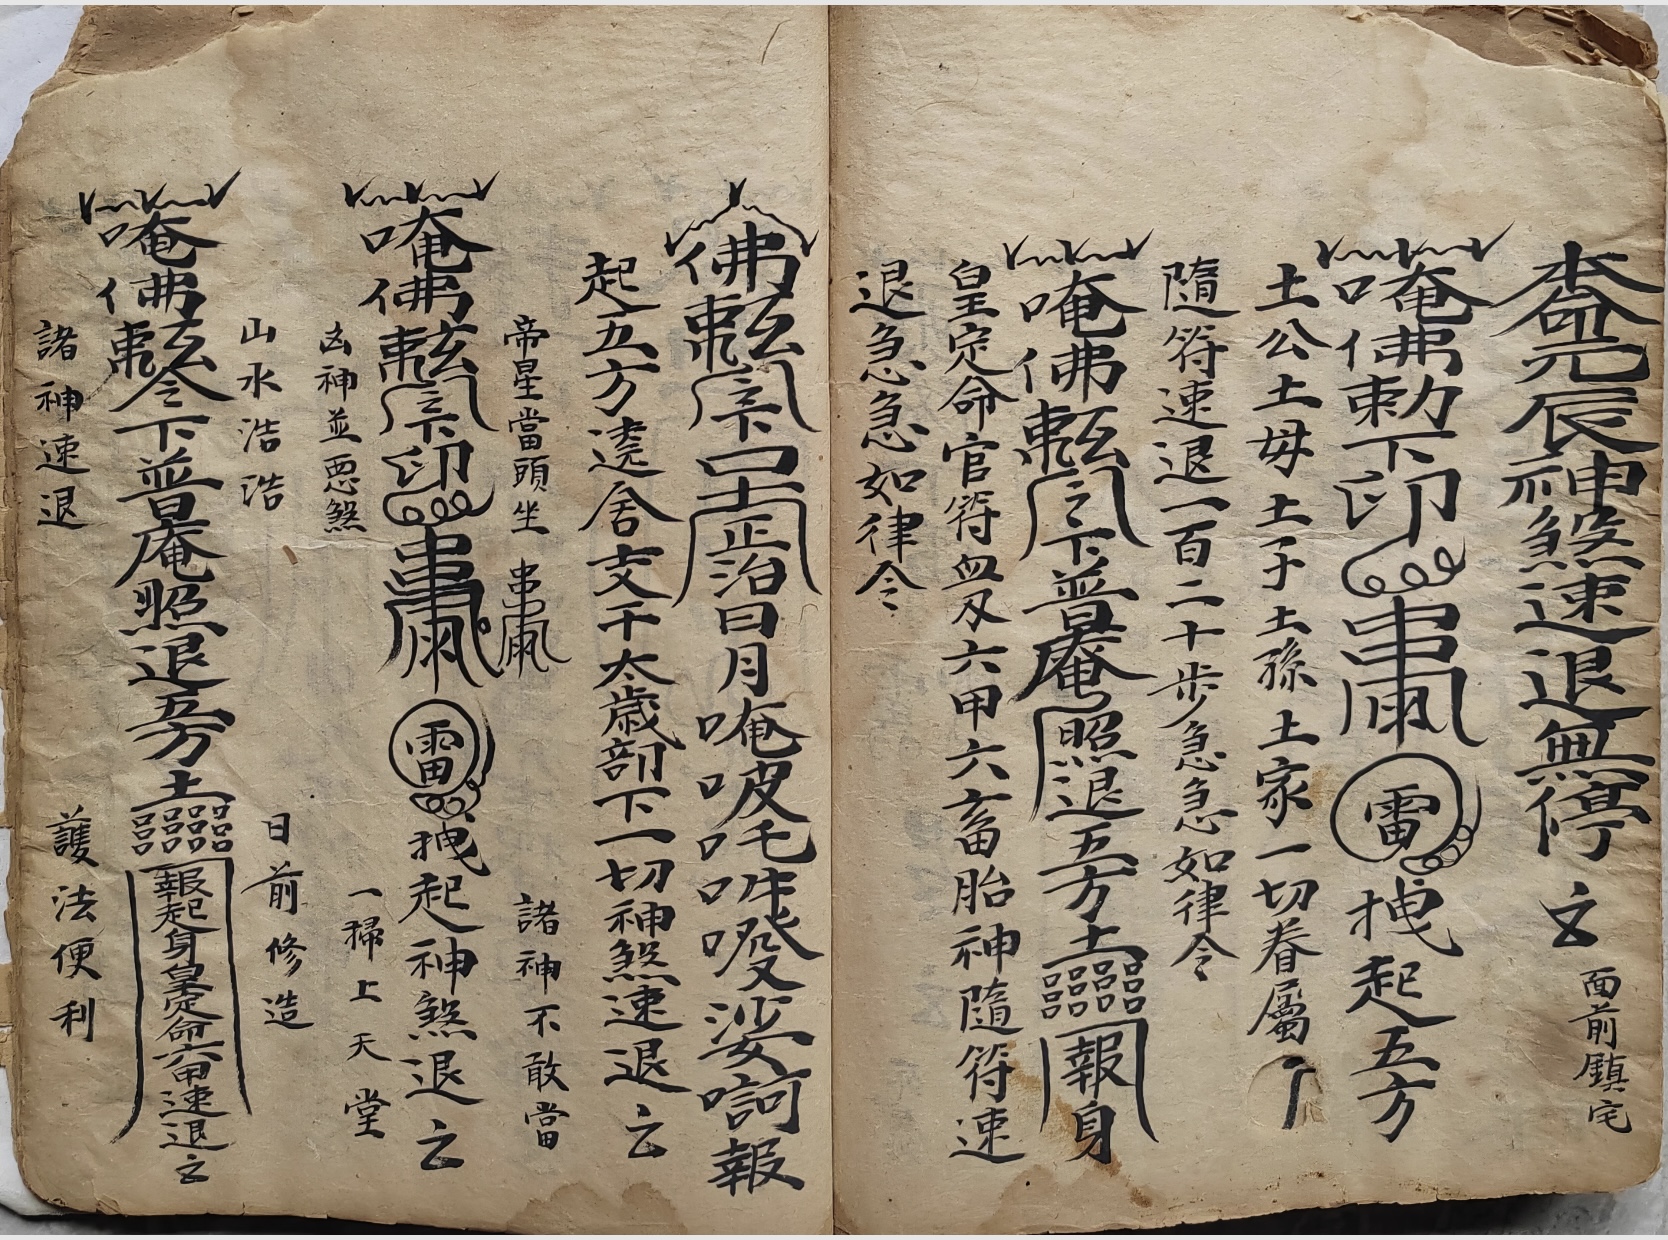 本命元辰神煞速退無停 云
面前鎮宅
唵佛勅下印
雷
拽起五方
土公土母土子土孫土家一切眷屬
隨符速退一百二十步急急如律令
唵佛勅令下普庵照退五方土
報身
皇定命官符血刃六甲六畜胎神隨符速
退急急如律令
佛勅令下
正治日月唵哑吒㖿㘔娑訶報
起五方遶舍支干太歲部下一切神煞速退云
帝星當頭坐
諸神不敢當
唵佛勅令下印
雷
拽起神煞退云
凶神並惡煞
一掃上天堂
山水浩浩
日前修造
唵佛勅令下普庵照退五方土
報起身皇定命六甲六畜速退云
諸神速退
護法便利